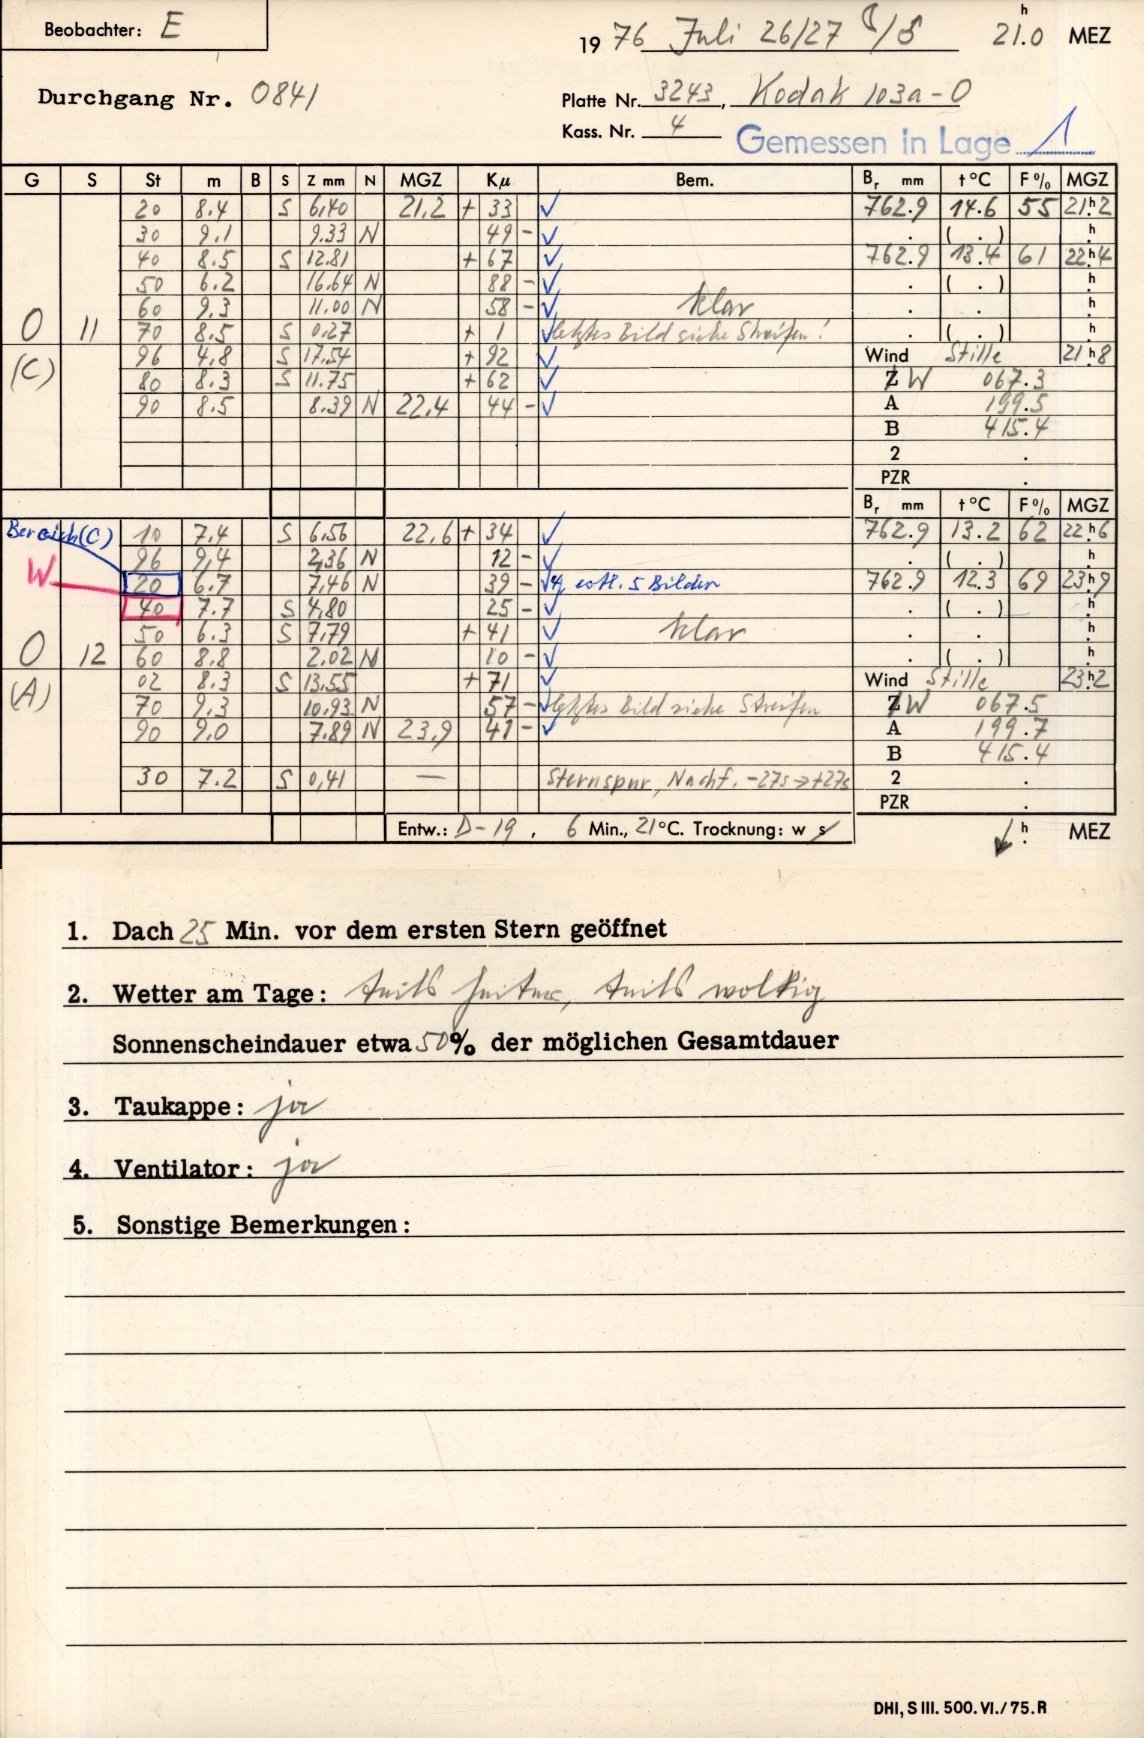 Beobachter: E
19 76 Juli 26/27 ☾/♂ 21.0 h MEZ
Durchgang Nr. 0841
Platte Nr. 3243, Kodak 103a-O
Kass. Nr. 4
Gemessen in Lage 1
G S St m B S Z mm N MGZ Kμ Bem. Br mm t °C F % MGZ
20 8.4 S 6,40 21,2 + 33 ✓ 762.9 14.6 55 21h2
30 9.1 9.33 N 49 - ✓ . ( . ) h
40 8.5 S 12.81 + 67 ✓ 762.9 13.4 61 22h4
50 6.2 16.64 N 88 - ✓ . ( . ) h
60 9.3 11.00 N 58 - ✓ klar . . h
O 11 70 8.5 S 0,27 + 1 ✓ letztes Bild siehe Streifen! . ( . ) h
(C) 96 4,8 S 17.54 + 92 ✓ Wind Stille 21h8
80 8.3 S 11.75 + 62 ✓ Z W 067.3
90 8.5 8.39 N 22,4 44 - ✓ A 199.5
B 415.4
2 .
PZR .
Br mm t °C F % MGZ
Bereich (C) 10 7.4 S 6,56 22,6 + 34 ✓ 762.9 13.2 62 22h6
96 9,4 2,36 N 12 - ✓ . ( . ) h
W 20 6.7 7,46 N 39 - ✓ 5 Bilder 762.9 12.3 69 23h9
40 7.7 S 4,80 25 - ✓ . ( . ) h
50 6.3 S 7,79 + 41 ✓ klar . . h
O 12 60 8.8 2.02 N 10 - ✓ . ( . ) h
(A) 02 8.3 S 13,55 + 71 ✓ Wind Stille 23h2
70 9.3 10.93 N 57 - ✓ letztes Bild siehe Streifen Z W 067.5
90 9.0 7.89 N 23,9 41 - ✓ A 199.7
B 415.4
30 7.2 S 0,41 — Sternspur, Nachf. -27s → +27s 2 .
PZR .
Entw.: D-19, 6 Min., 21°C. Trocknung: w s h MEZ
1. Dach 25 Min. vor dem ersten Stern geöffnet
2. Wetter am Tage: teils heiter, teils wolkig
Sonnenscheindauer etwa 50% der möglichen Gesamtdauer
3. Taukappe: ja
4. Ventilator: ja
5. Sonstige Bemerkungen:
DHI, S III. 500. VI./75. R